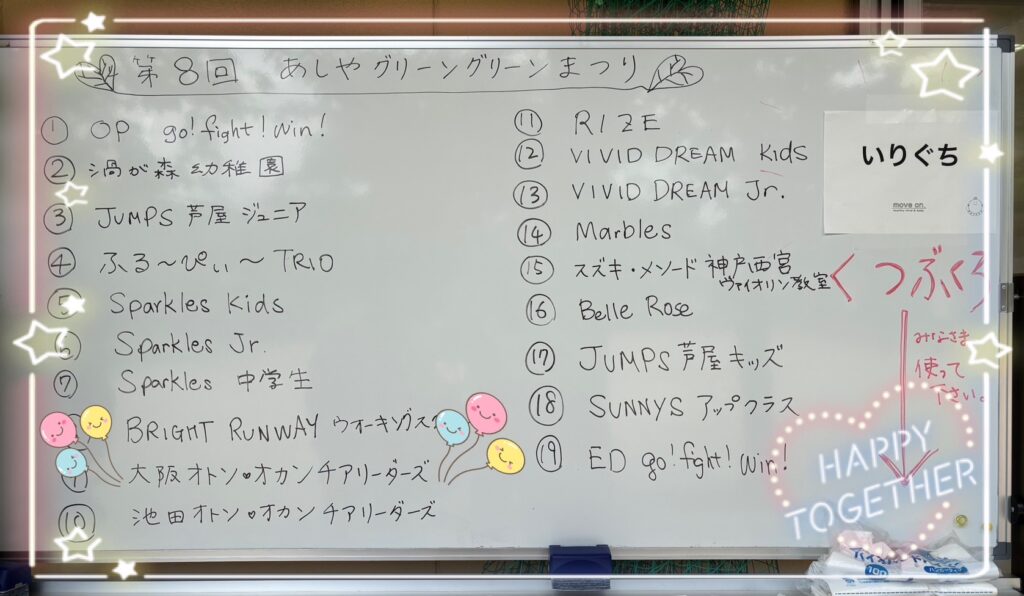 第8回 あしやグリーングリーンまつり
① OP go! fight! win!
② 渦が森幼稚園
③ JUMPS 芦屋 ジュニア
④ ふる〜ぴぃ〜 TRIO
⑤ Sparkles Kids
⑥ Sparkles Jr.
⑦ Sparkles 中学生
BRIGHT RUNWAY ウォーキングス
大阪オトン♥オカンチアリーダーズ
⑩ 池田オトン♥オカンチアリーダーズ
⑪ RIZE
⑫ VIVID DREAM Kids
⑬ VIVID DREAM Jr.
⑭ Marbles
⑮ スズキ・メソード 神戸西宮
ヴァイオリン教室
⑯ Belle Rose
⑰ JUMPS 芦屋 キッズ
⑱ SUNNYS アップクラス
⑲ ED go! fght! win!
いりぐち
move on.
くつぶくろ
みなさま
使って
下さい。
HAPPY
TOGETHER